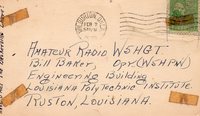 FEB 7
AMATEUR RADIO W5HGT.
BILL BAKER, OPR (W5HPW)
ENGINEERING BUILDING
LOUISIANA POLYTECHNIC INSTITUTE
RUSTON, LOUISIANA.